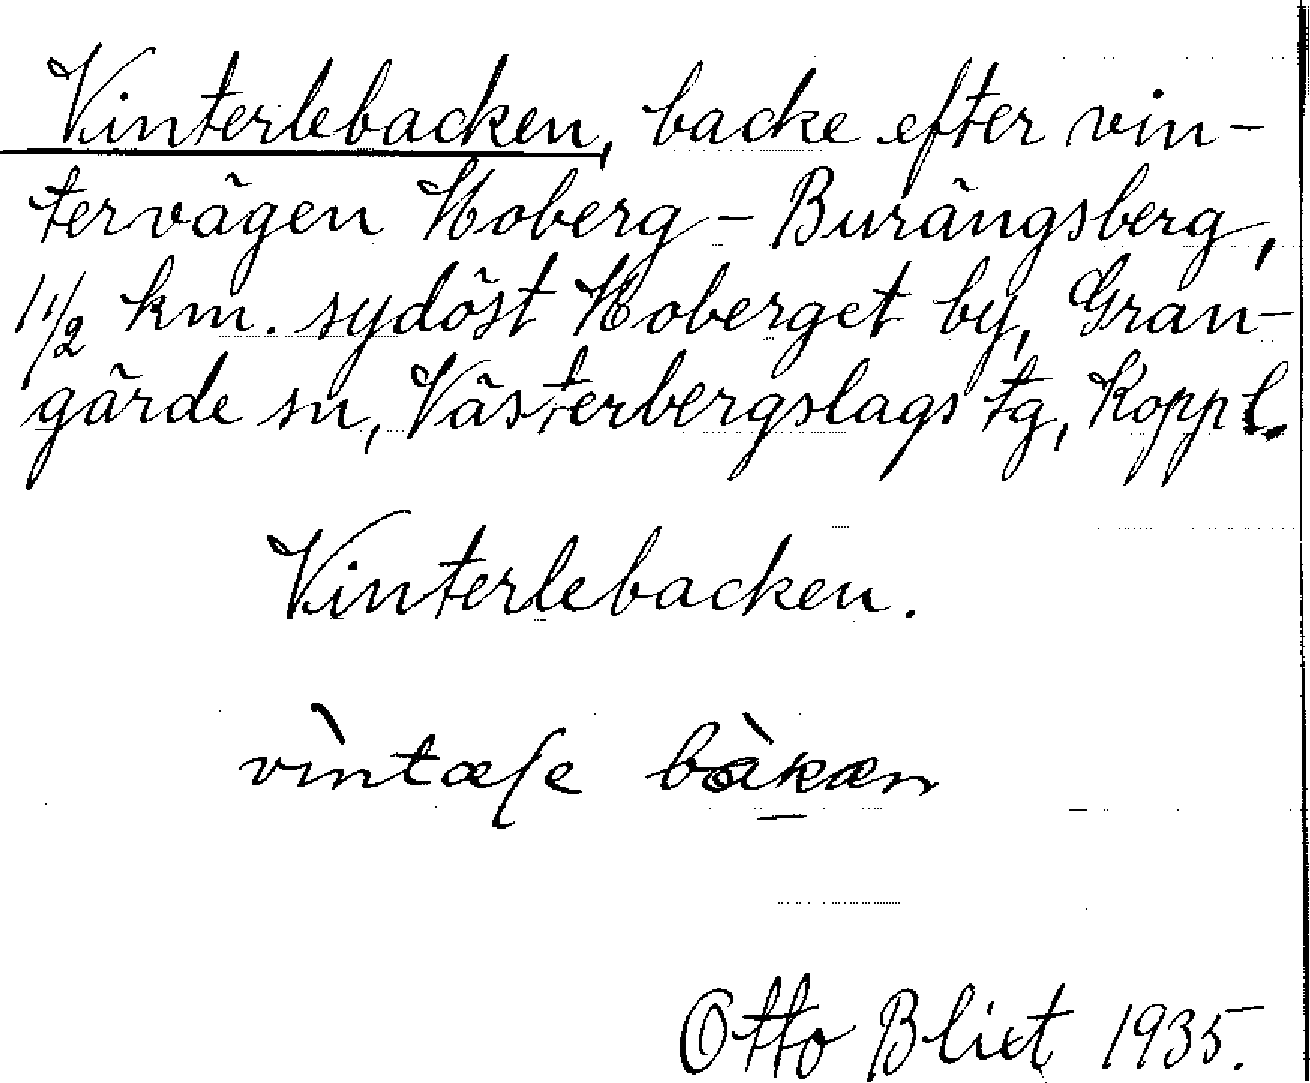 Vinterlebacken, backe efter vin-
tervägen Hoberg - Burängsberg,
1 1/2 km. sydöst Hoberget by, Gran-
gärde sn, Västerbergslags tg, Koppl.
Vinterlebacken.
vìntæɭe bàkæn
Otto Blixt 1935.